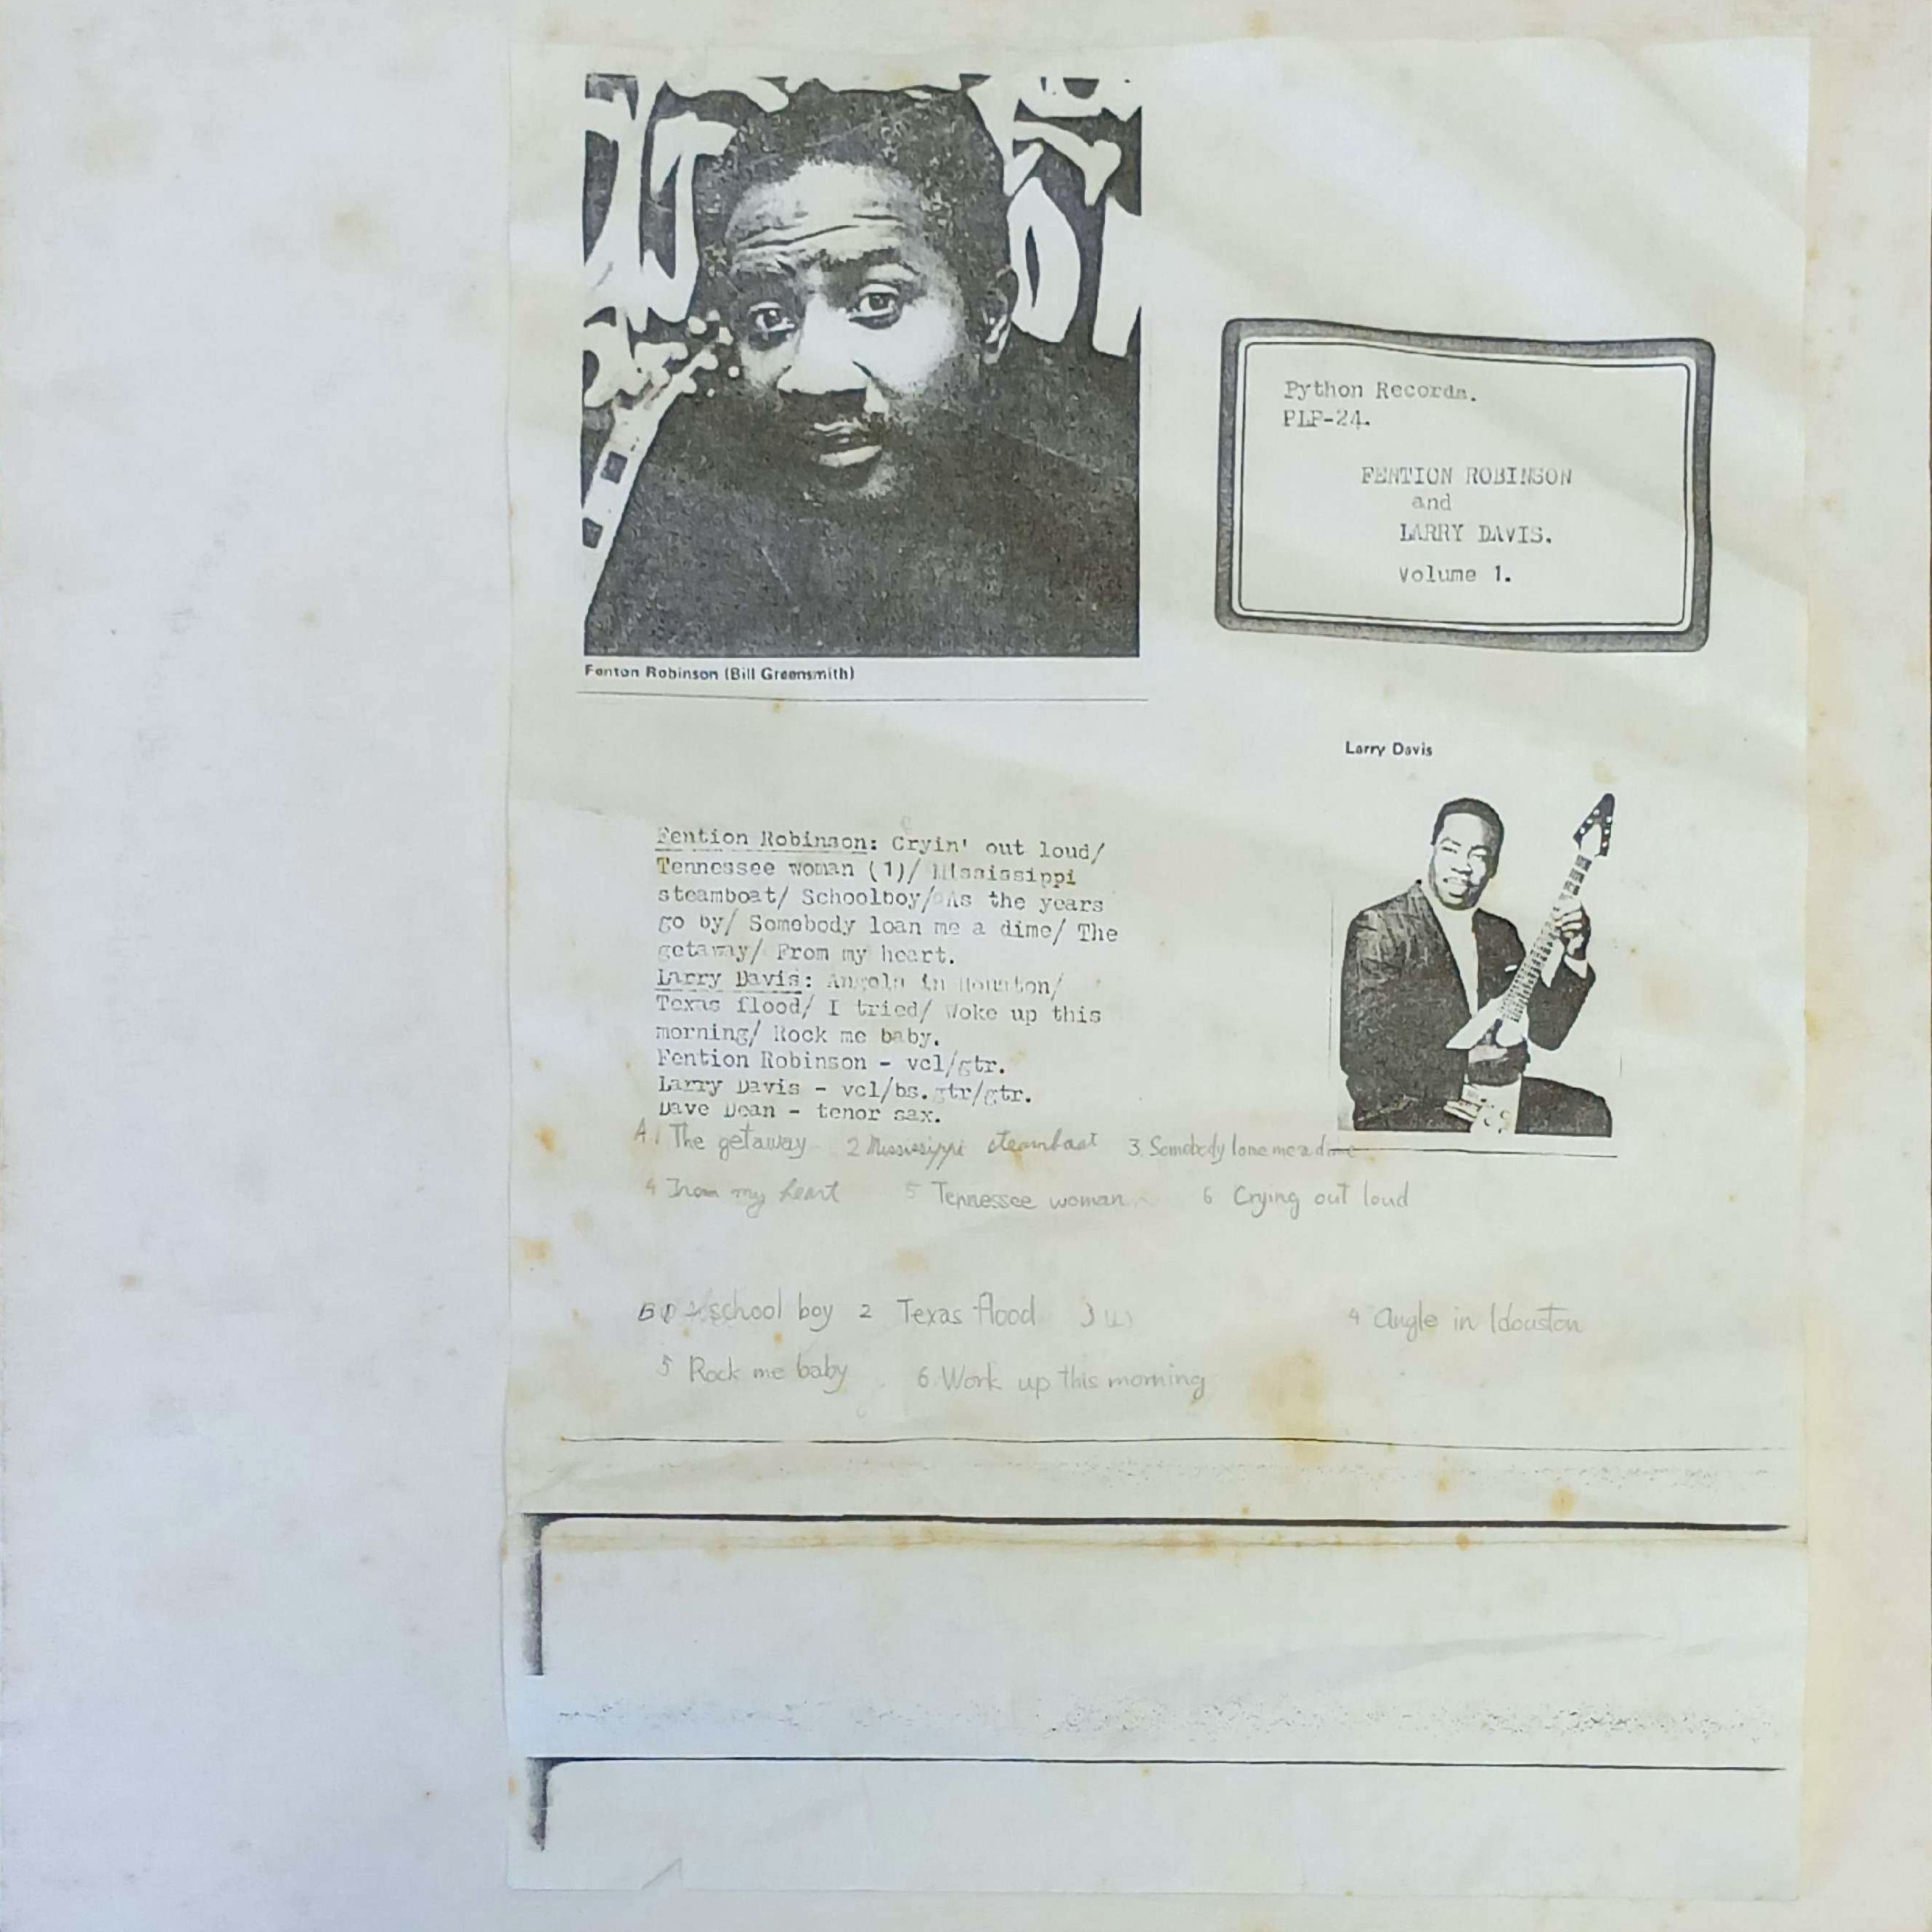 Fenton Robinson (Bill Greensmith)
Python Records.
PLP-24.
FENTION ROBINSON
and
LARRY DAVIS.
Volume 1.
Larry Davis
Fention Robinson: Cryin' out loud/
Tennessee woman (1)/ Mississippi
steamboat/ Schoolboy/ As the years
go by/ Somebody loan me a dime/ The
getaway/ From my heart.
Larry Davis: Angels in Houston/
Texas flood/ I tried/ Woke up this
morning/ Rock me baby.
Fention Robinson - vcl/gtr.
Larry Davis - vcl/bs. gtr/gtr.
Dave Dean - tenor sax.
A.1 The getaway 2 Mississippi steamboat 3. Somebody lone me a dime
4 From my heart 5 Tennessee woman 6 Crying out loud
B 1 school boy 2 Texas flood 3 4 Angle in Idouston
5 Rock me baby 6. Work up this morning